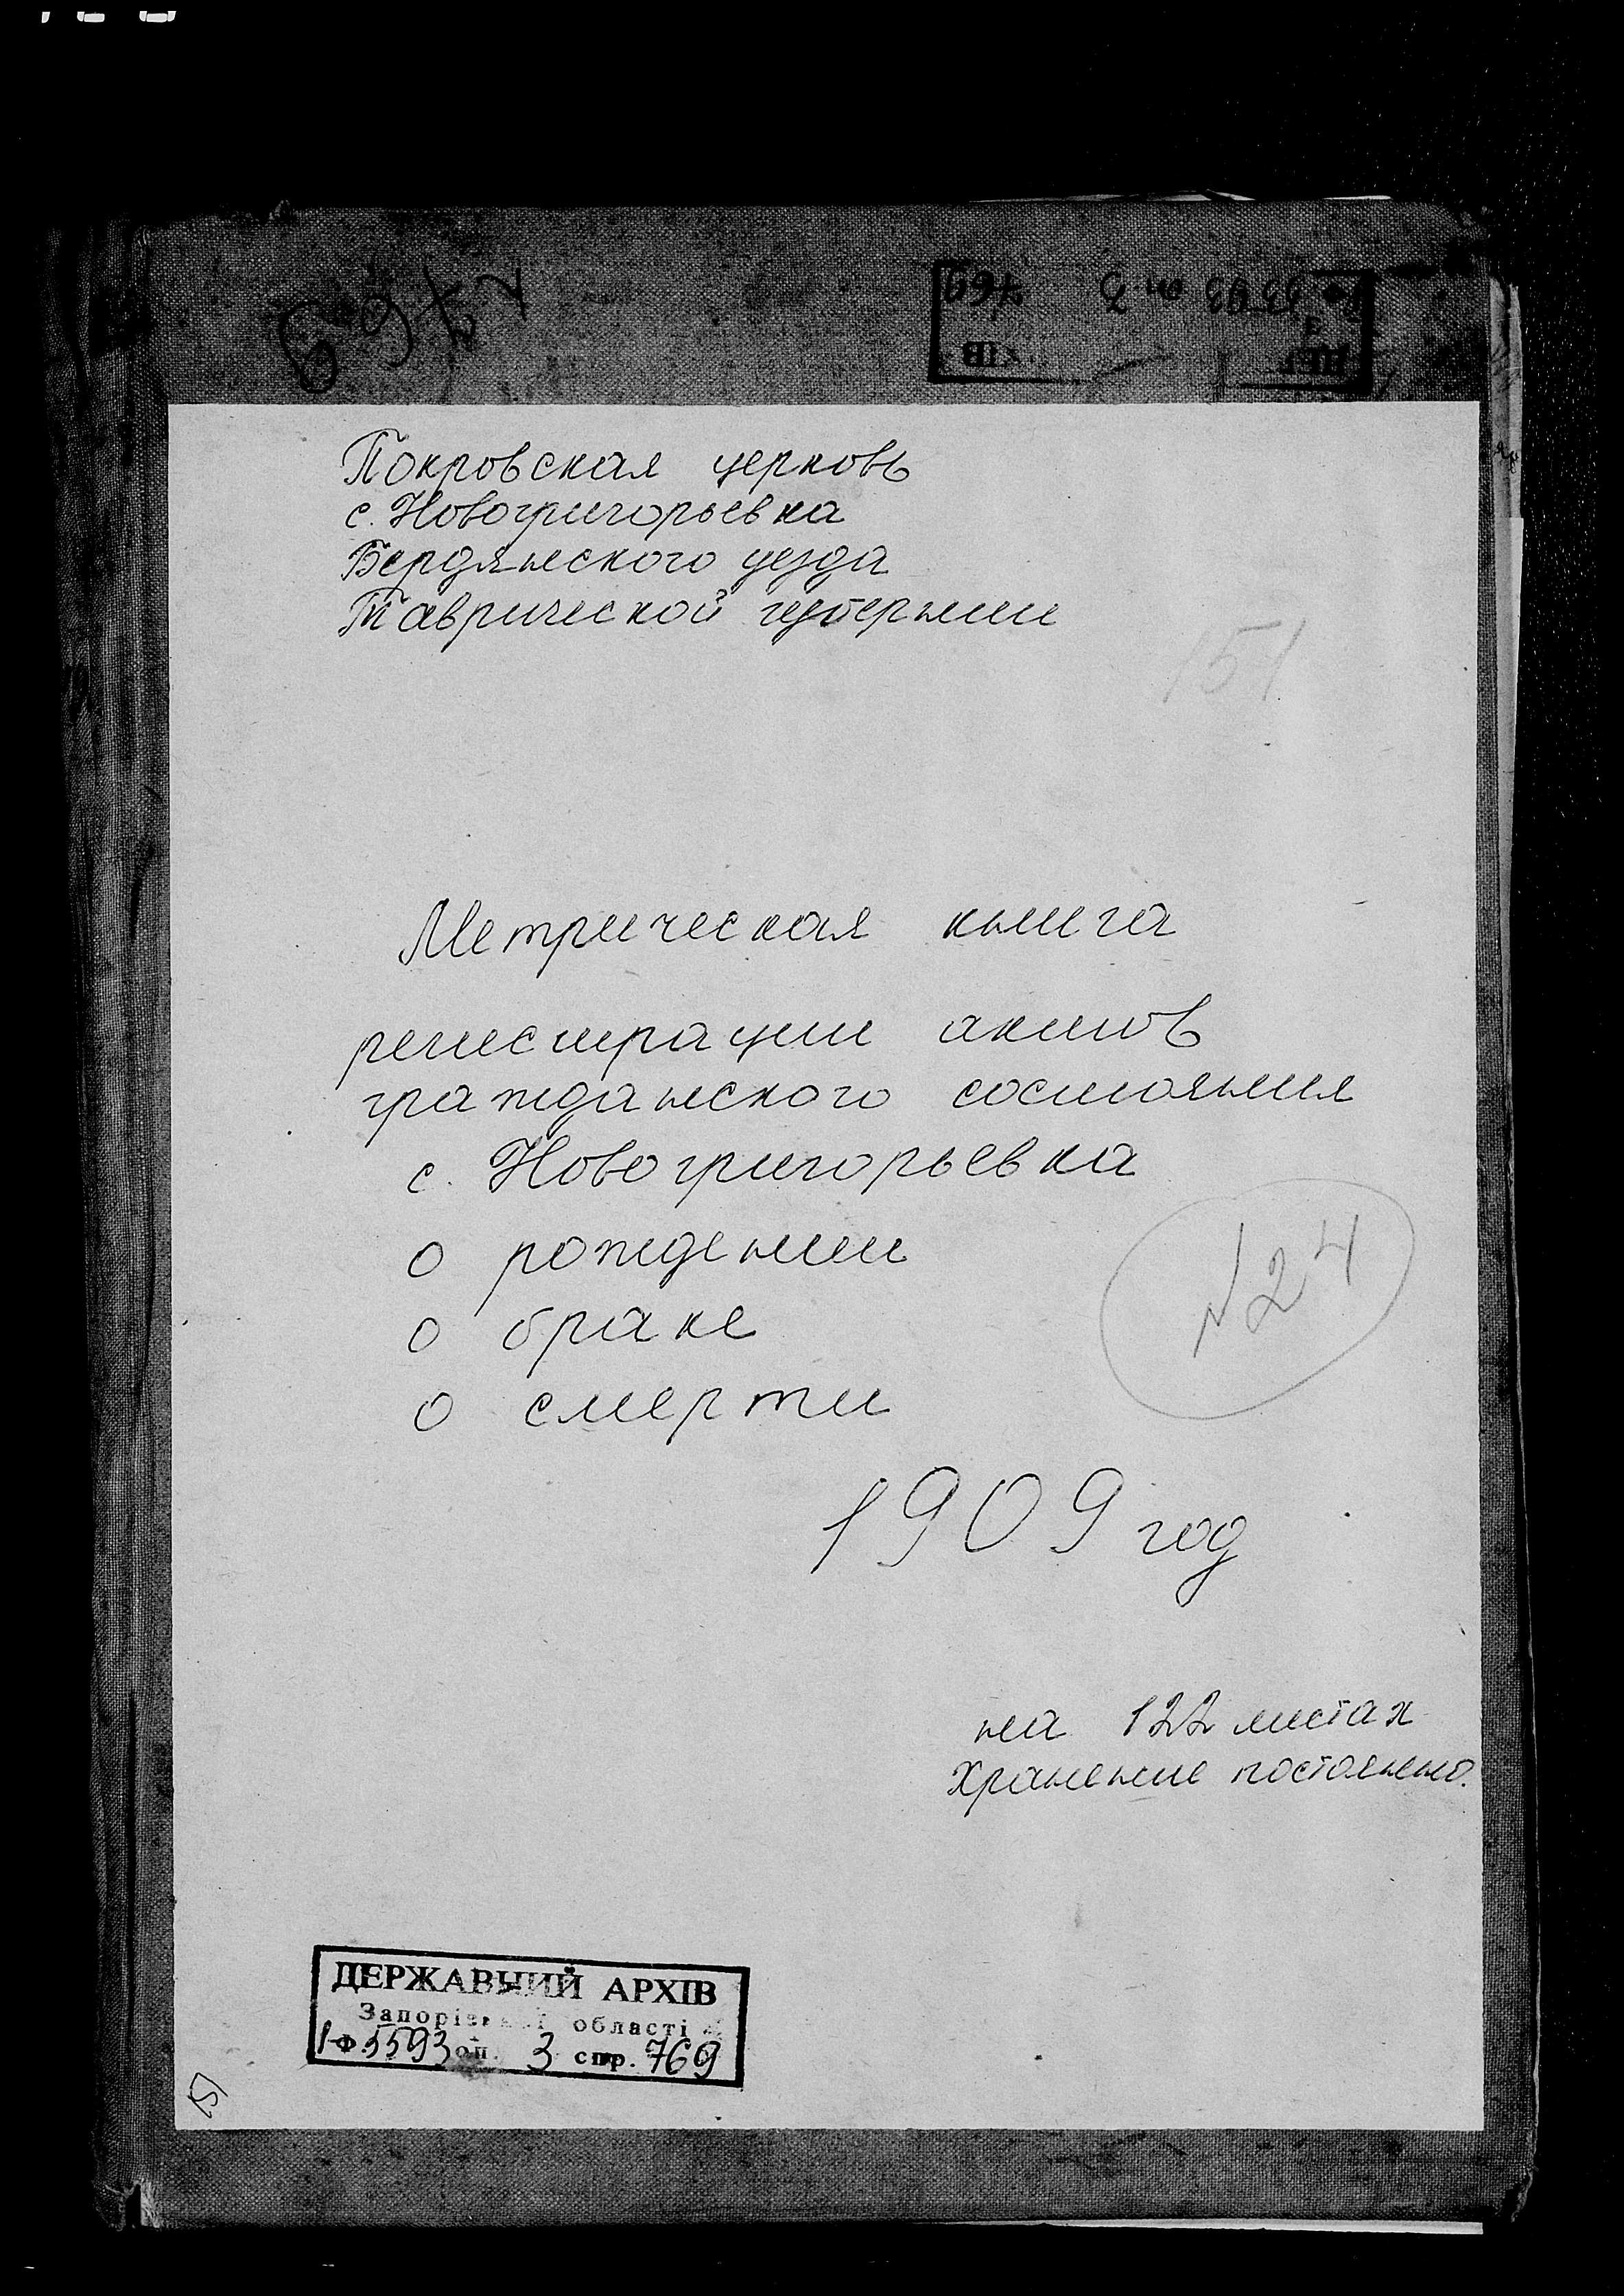 769
Покровская церковь
с. Новогригорьевка
Бердянского уезда
Таврической губернии
151
Метрическая книга
регистрации актов
гражданского состояния
с. Новогригорьевка
о рождении
о браке
о смерти
№24
1909 год
на 122 листах
Хранение постоянно.
ДЕРЖАВНИЙ АРХІВ
Запорізької області
Ф. 5593 оп. 3 спр. 769